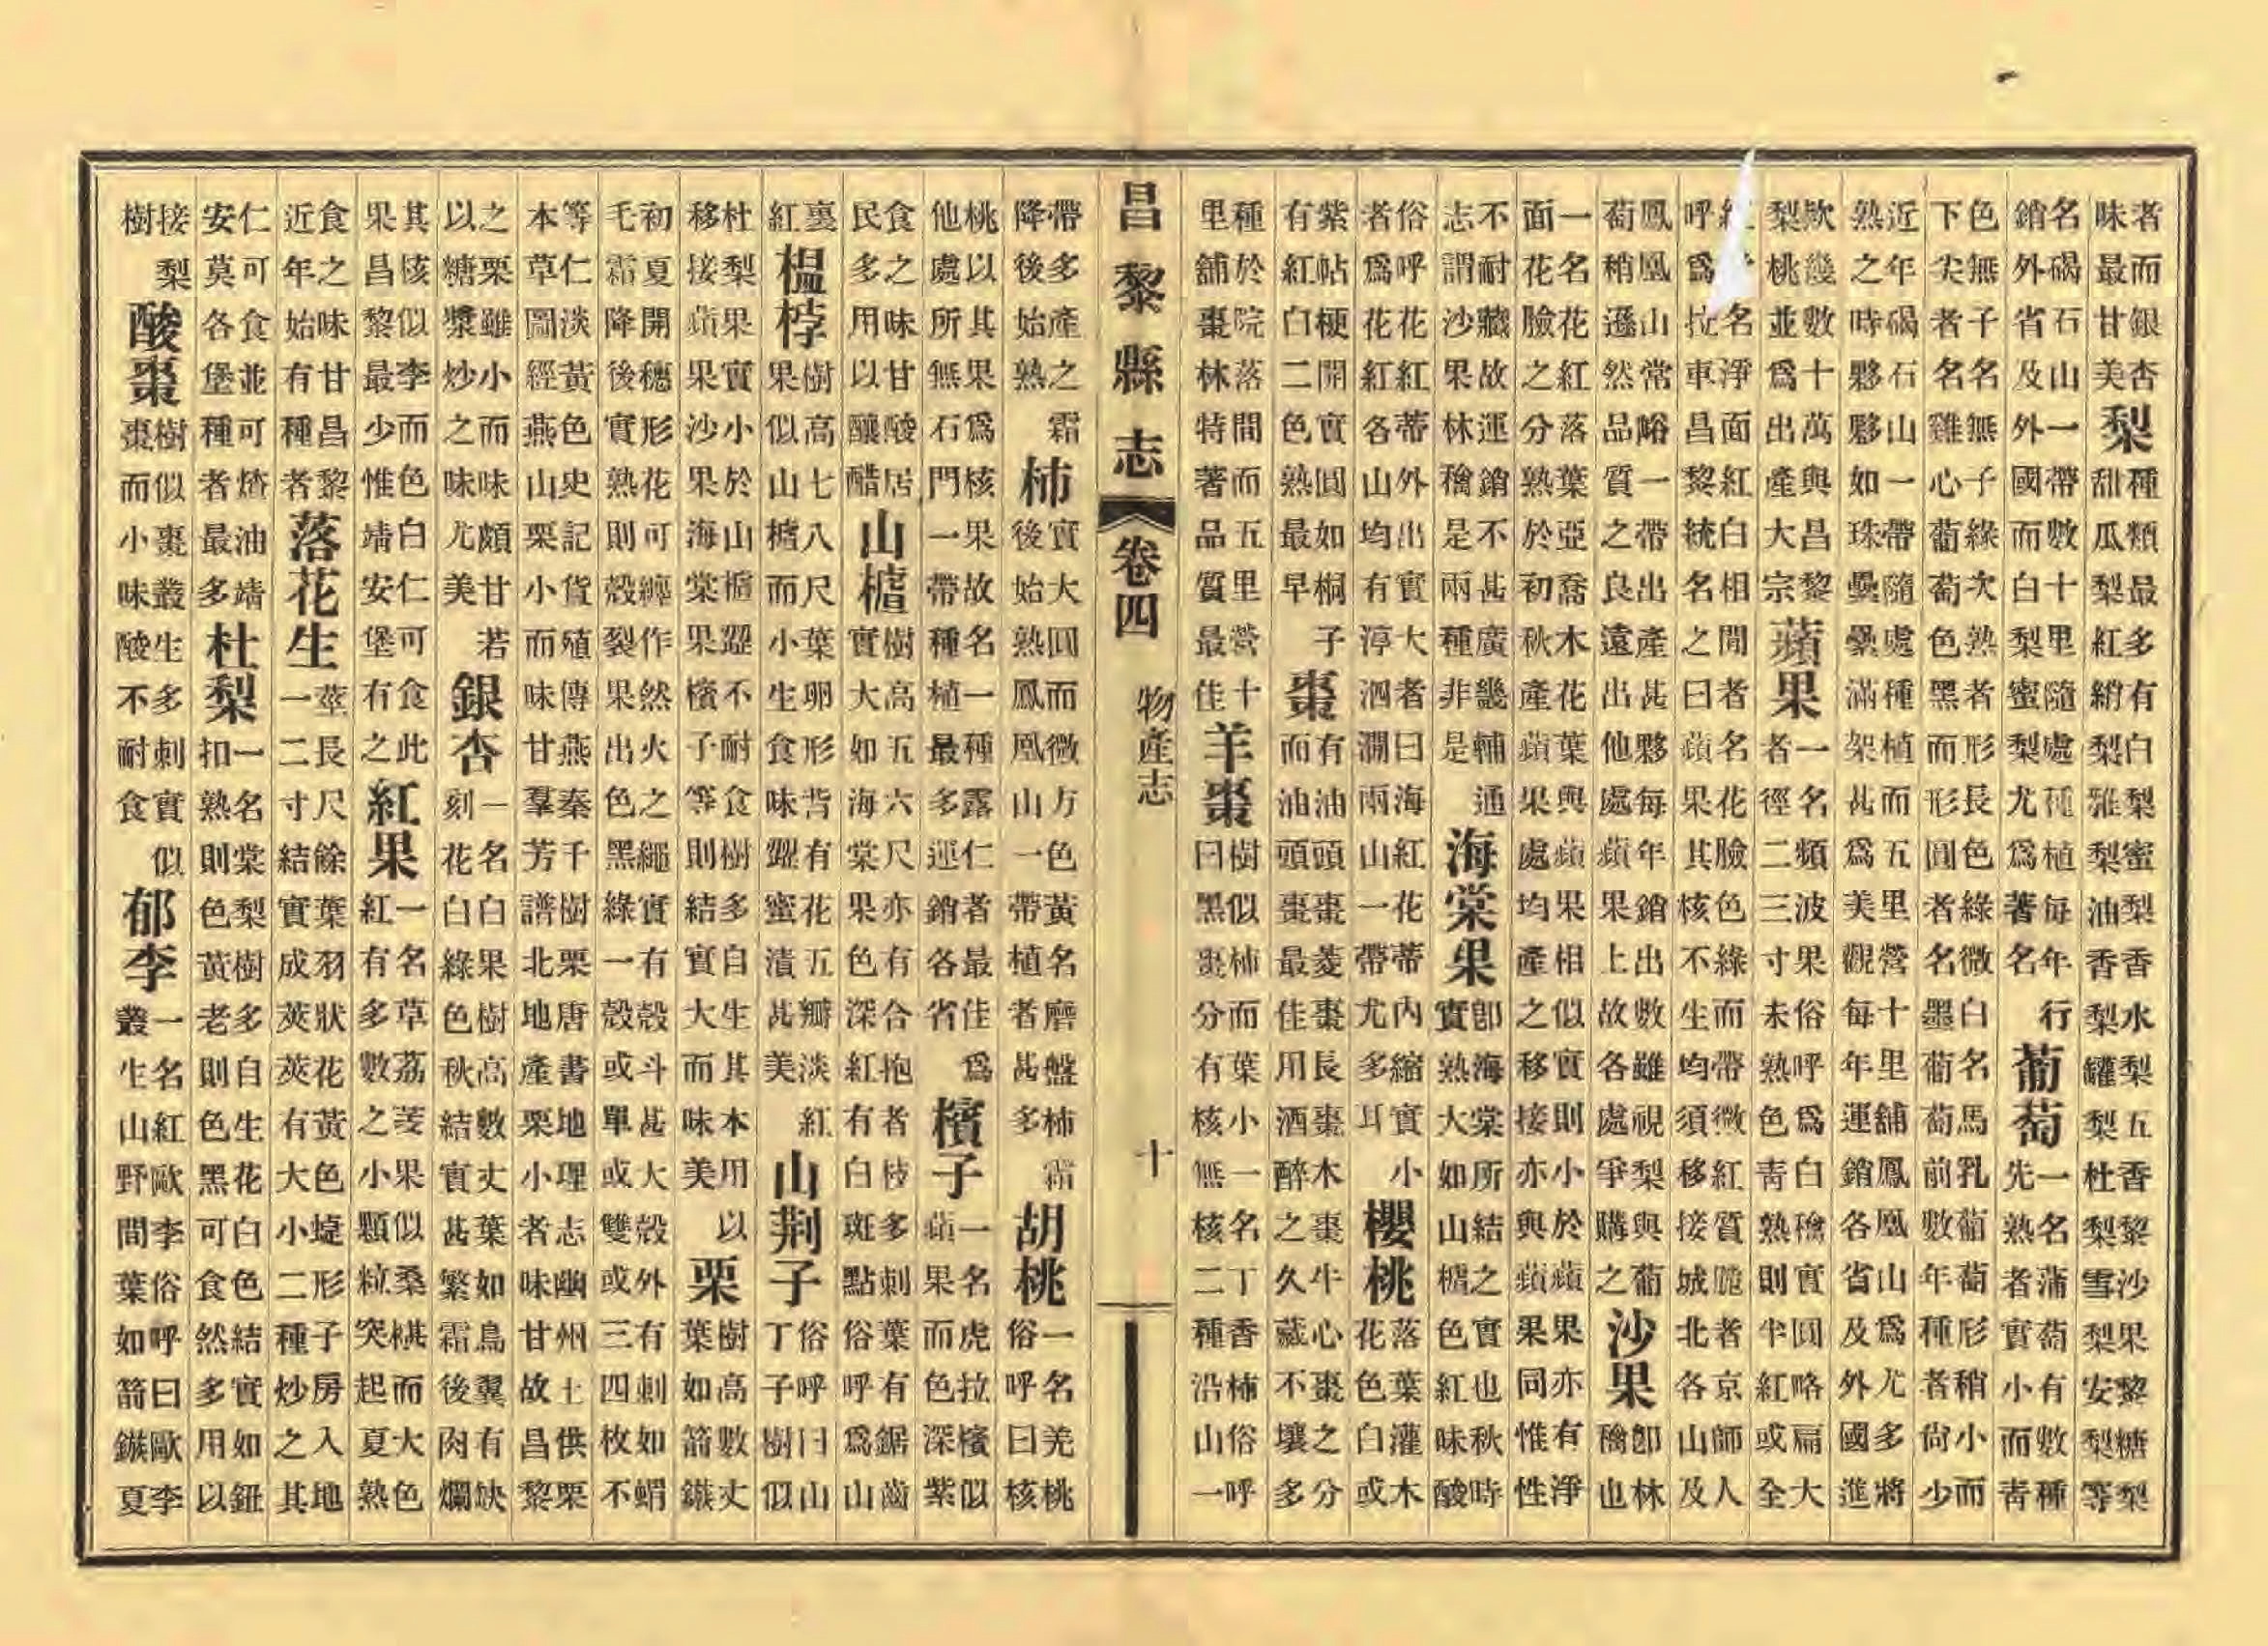 者而銀杏味最甘美梨種類最多有白梨蜜梨香水梨五香黎沙果黎糖梨甜瓜梨紅綃梨雅梨油香梨罐梨杜梨雪梨安梨等
名碣石山一帶數十里隨處種植每年行銷外省及外國而白梨蜜梨尤爲著名葡萄一名蒲萄有數種先熟者實小而青
色無子名無子綠次熟者形長色綠微白名馬乳葡萄形稍小而下尖者名雞心葡萄色黑而形圓者名墨葡萄前數年種者尙少
近年碣石山一帶隨處種植而五里營十里舖鳳凰山爲尤多將熟之時夥夥如珠纍纍滿架甚爲美觀每年運銷各省及外國進
欵幾數十萬與昌黎梨桃並爲出產大宗蘋果一名頻波果俗呼爲白檎實圓略扁大者徑二三寸未熟色青熟則半紅或全
紅名淨面紅白相間者名花臉色綠而帶微紅質脆者京師人呼爲拉車昌黎統名之曰蘋果其核不生均須移接城北各山及
鳳凰山常峪一帶出產甚夥每年銷出數雖視梨與葡萄稍遜然品質之良遠出他處蘋果上故各處爭購之沙果卽林檎也
一名花紅落葉亞喬木花葉與蘋果相似實則小於蘋果亦有淨面花臉之分熟於初秋產蘋果處均產之移接亦與蘋果同惟性
不耐藏故運銷不甚廣幾輔通志謂沙果林檎是兩種非是海棠果卽海棠所結之實也秋時實熟大如山樝色紅味酸
俗呼花紅蒂外出實大者曰海紅花蒂內縮實小者爲花紅各山均有渟泗澗兩山一帶尤多耳櫻桃落葉灌木花色白或
紫帖梗開實圓如桐子有紅白二色熟最早棗有油頭棗菱棗長棗木棗牛心棗之分而油頭棗最佳用酒醉之久藏不壞多
種於院落間而五里營十里舖棗林特著品質最佳羊棗樹似柿而葉小一名丁香柿俗呼曰黑棗分有核無核二種沿山一
昌黎縣志 卷四 物產志 十
帶多產之霜降後始熟柿實大圓而微方色黃名磨盤柿霜後始熟鳳凰山一帶植者甚多胡桃一名羌桃俗呼曰核
桃以其果爲核果故名一種露仁者最佳爲他處所無石門一帶種植最多運銷各省檳子一名虎拉檳似蘋果而色深紫
食之味甘酸居民多用以釀醋山樝樹高五六尺亦有合抱者枝多刺葉有鋸齒實大如海棠果色深紅有白斑點俗呼爲山
裏紅榲桲樹高七八尺葉卵形背有花五瓣淡紅果似山樝而小生食味澀蜜漬甚美山荆子俗呼曰山丁子樹似
杜梨果實小於山樝澀不耐食樹多自生其本用以移接蘋果沙果海棠果檳子等則結實大而味美栗樹高數丈葉如箭鏃
初夏開穗形花可纏作然火之繩實有殼斗甚大殼外有刺如蝟毛霜降後實熟則殼裂果出色黑綠一殼或單或雙或三四枚不
等仁淡黃色史記貨殖傳燕秦千樹栗唐書地理志幽州土供栗本草圖經燕山栗小而味甘羣芳譜北地產栗小者味甘故昌黎
之栗雖小而味頗甘若以糖漿炒之味尤美銀杏一名白果樹高數丈葉如鳥翼有缺刻花白綠色秋結實甚繁霜後肉爛
其核似李而色白仁可食此果昌黎最少惟靖安堡有之紅果一名草荔菱果似桑椹而大色紅有多數之小顆粒突起夏熟
食之味甘昌黎近年始有種者落花生莖長尺餘葉羽狀花黃色蝶形子房入地一二寸結實成莢莢有大小二種炒之其
仁可食並可油靖安莫各堡種者最多杜梨一名棠梨樹多自生花白色結實如鈕扣熟則色黃老則色黑可食然多用以
接梨樹酸棗樹似棗叢生多刺實似棗而小味酸不耐食郁李一名紅歐李俗呼曰歐李叢生山野間葉如箭鏃夏